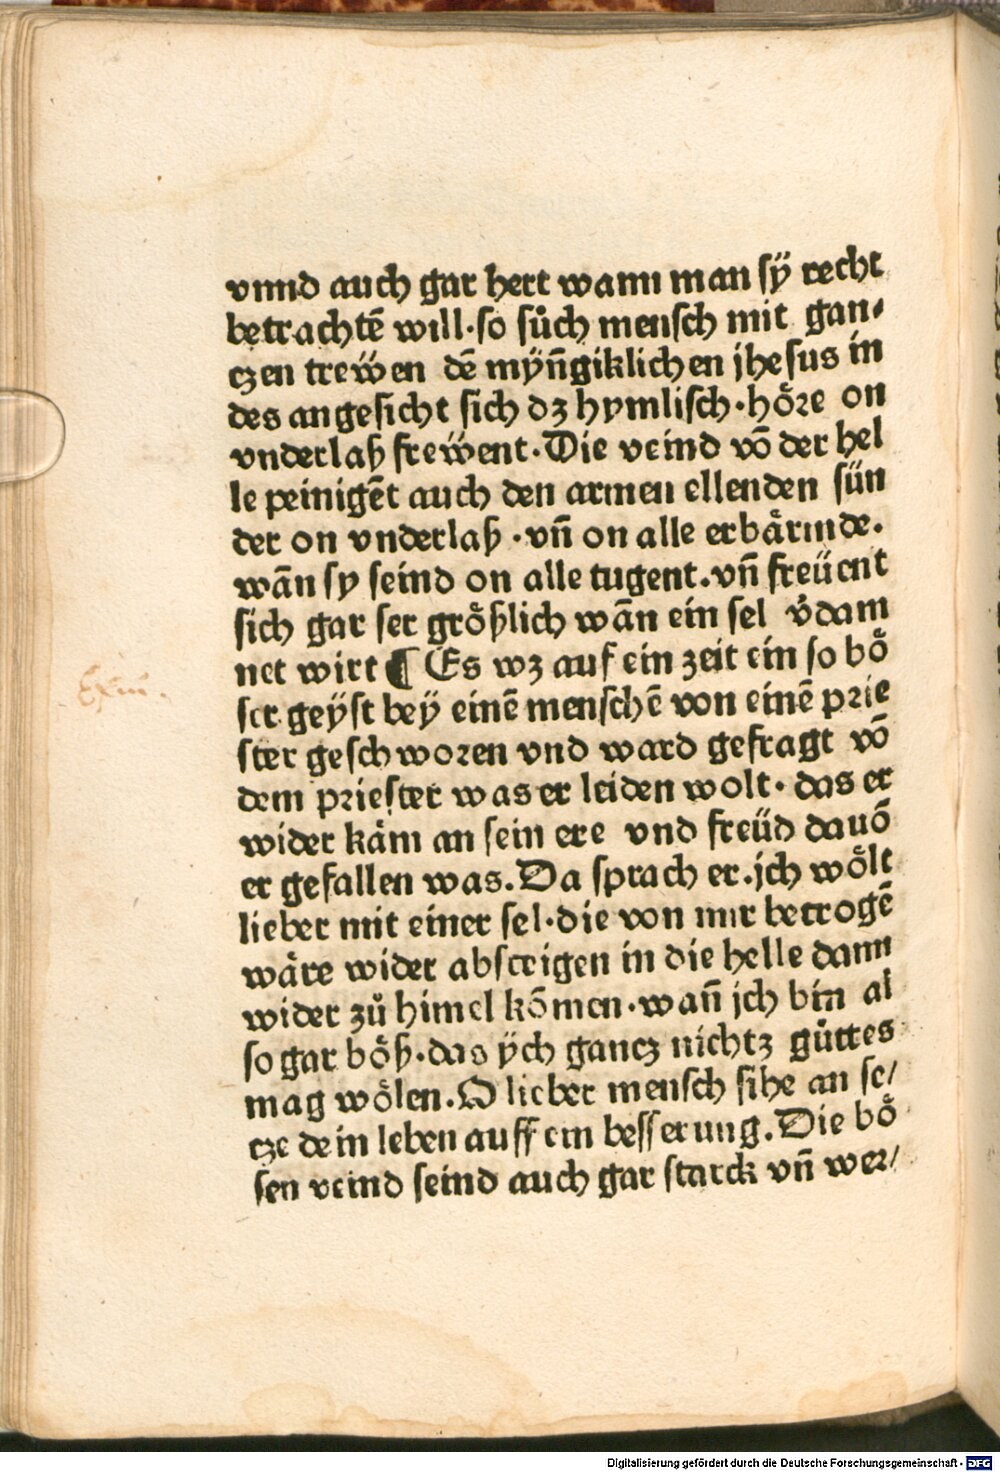 vnnd auch gar hert wann man sÿ recht
betrachtē will·so sůch mensch mit gan⸗
czen trewen dē mÿn̄giklichen jhesus in
des angesicht sich dz hymlisch·höꝛe on
vnderlaß frewent·Die veind vō der hel
le peinigēt auch den armen ellenden sün
der on vnderlaß·vn̄ on alle erbärmde·
wān sy seind on alle tugent.vn̄ freüent
sich gar ser größlich wān ein sel v̄dam
net wirt ¶ Es wz auf ein zeit ein so bö
ser geÿst beÿ einē menschē von einē pꝛie
ster geschwoꝛen vnd ward gefragt vō
dem pꝛiester was er leiden wolt·das er
wider käm an sein ere vnd freüd dauō
er gefallen was.Da sprach er.jch wölt
lieber mit einer sel·die von mir betrogē
wäre wider absteigen in die helle dann
wider zů himel kōmen·wan̄ jch bin al
so gar böß·das ÿch gancz nichtz gůttes
mag wölen.O lieber mensch sihe an se/
cze dein leben auff ein besserung.Die bö
sen veind seind auch gar starck vn̄ weꝛ/
Exm̄.
Digitalisierung gefördert durch die Deutsche Forschungsgemeinschaft - DFG